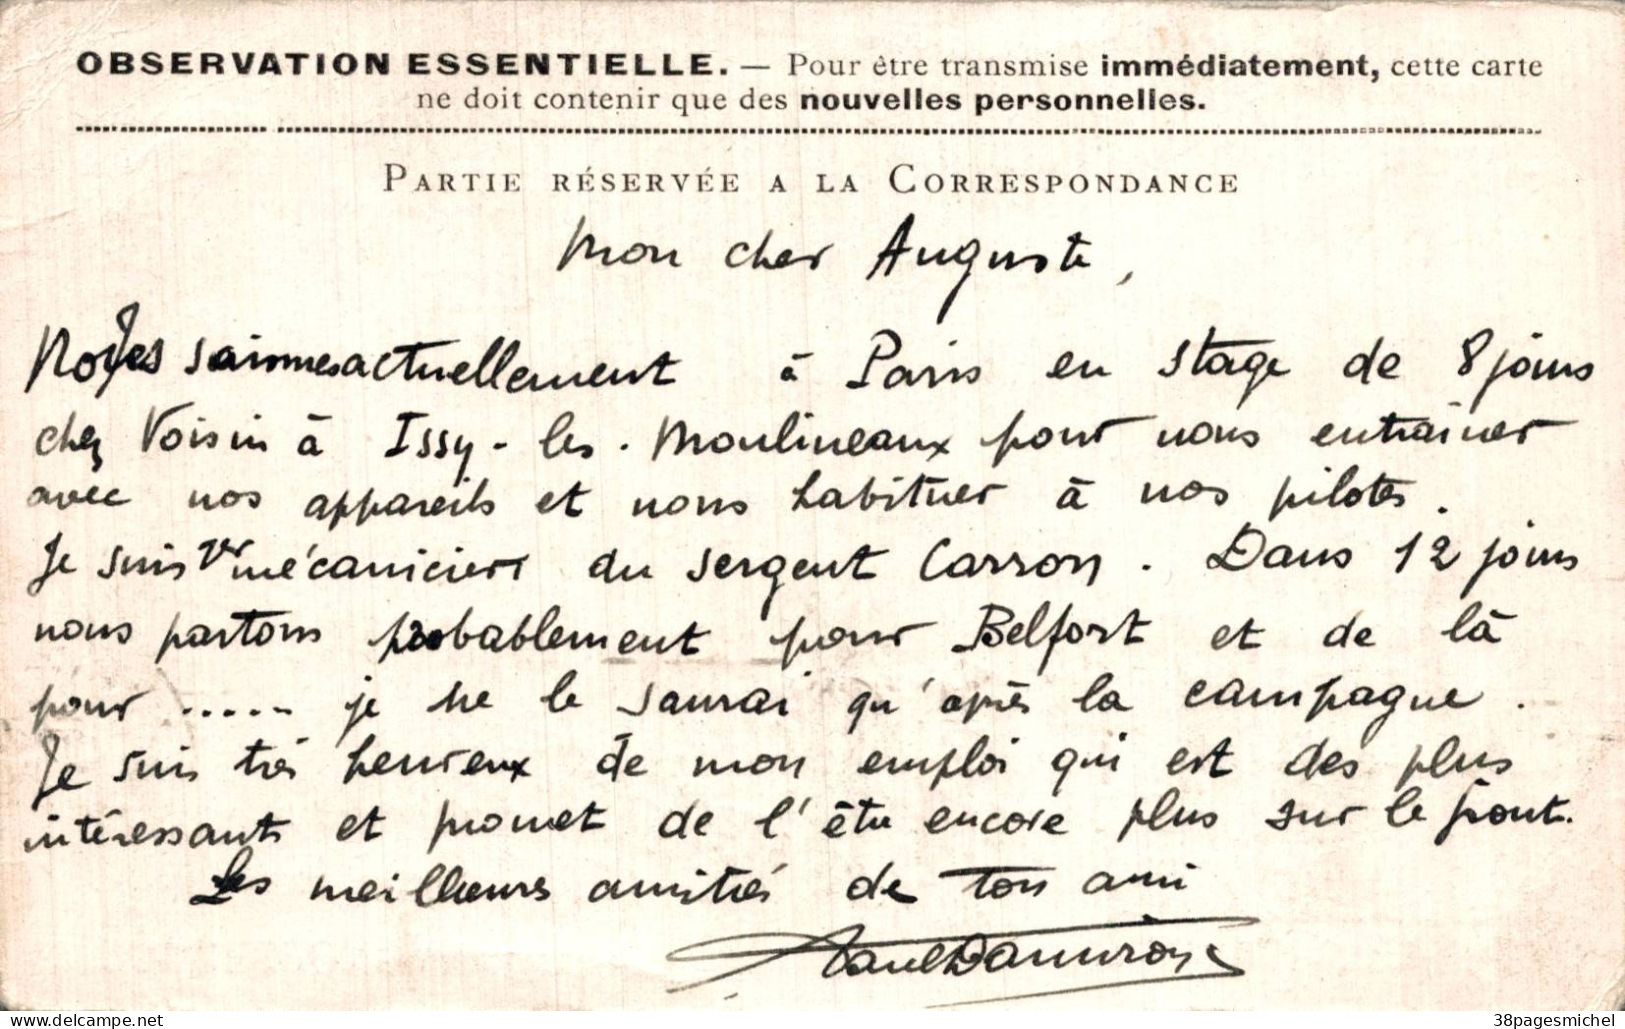 OBSERVATION ESSENTIELLE. — Pour être transmise immédiatement, cette carte
ne doit contenir que des nouvelles personnelles.
PARTIE RÉSERVÉE A LA CORRESPONDANCE
Mon cher Auguste,
Nous sommes actuellement à Paris en stage de 8 jours
chez Voisin à Issy-les-Moulineaux pour nous entraîner
avec nos appareils et nous habituer à nos pilotes.
Je suis 1er mécanicien du sergent Carron. Dans 12 jours
nous partons probablement pour Belfort et de là
pour ..... je ne le saurai qu'après la campagne.
Je suis très heureux de mon emploi qui est des plus
intéressants et promet de l'être encore plus sur le front.
Les meilleures amitiés de ton ami
Paul
delcampe.net
38pagesmichel